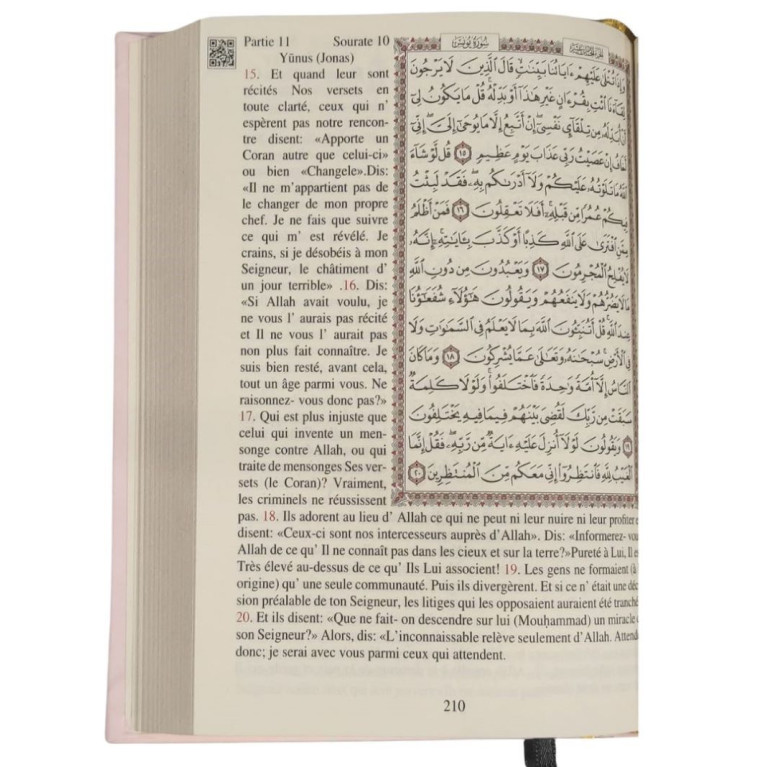 Partie 11 Sourate 10
Yūnus (Jonas)
15. Et quand leur sont
récités Nos versets en
toute clarté, ceux qui n’
espèrent pas notre rencon-
tre disent: «Apporte un
Coran autre que celui-ci»
ou bien «Changele».Dis:
«Il ne m’appartient pas de
le changer de mon propre
chef. Je ne fais que suivre
ce qui m’ est révélé. Je
crains, si je désobéis à mon
Seigneur, le châtiment d’
un jour terrible» .16. Dis:
«Si Allah avait voulu, je
ne vous l’ aurais pas récité
et Il ne vous l’ aurait pas
non plus fait connaître. Je
suis bien resté, avant cela,
tout un âge parmi vous. Ne
raisonnez- vous donc pas?»
17. Qui est plus injuste que
celui qui invente un men-
songe contre Allah, ou qui
traite de mensonges Ses ver-
sets (le Coran)? Vraiment,
les criminels ne réussissent
سُورَةُ يُونُسَ
وَإِذَا تُتْلَىٰ عَلَيْهِمْ ءَايَاتُنَا بَيِّنَـٰتٍ قَالَ ٱلَّذِينَ لَا يَرْجُونَ
لِقَآءَنَا ٱئْتِ بِقُرْءَانٍ غَيْرِ هَـٰذَآ أَوْ بَدِّلْهُ ۚ قُلْ مَا يَكُونُ لِىٓ
أَنْ أُبَدِّلَهُۥ مِن تِلْقَآئِ نَفْسِىٓ ۖ إِنْ أَتَّبِعُ إِلَّا مَا يُوحَىٰٓ إِلَىَّ ۖ إِنِّىٓ
أَخَافُ إِنْ عَصَيْتُ رَبِّى عَذَابَ يَوْمٍ عَظِيمٍ ١٥ قُل لَّوْ شَآءَ
ٱللَّهُ مَا تَلَوْتُهُۥ عَلَيْكُمْ وَلَآ أَدْرَىٰكُم بِهِۦ ۖ فَقَدْ لَبِثْتُ
فِيكُمْ عُمُرًا مِّن قَبْلِهِۦٓ ۚ أَفَلَا تَعْقِلُونَ ١٦ فَمَنْ أَظْلَمُ
مِمَّنِ ٱفْتَرَىٰ عَلَى ٱللَّهِ كَذِبًا أَوْ كَذَّبَ بِـَٔايَـٰتِهِۦٓ ۚ إِنَّهُۥ
لَا يُفْلِحُ ٱلْمُجْرِمُونَ ١٧ وَيَعْبُدُونَ مِن دُونِ ٱللَّهِ
مَا لَا يَضُرُّهُمْ وَلَا يَنفَعُهُمْ وَيَقُولُونَ هَـٰٓؤُلَآءِ شُفَعَـٰٓؤُنَا
عِندَ ٱللَّهِ ۚ قُلْ أَتُنَبِّـُٔونَ ٱللَّهَ بِمَا لَا يَعْلَمُ فِى ٱلسَّمَـٰوَٰتِ وَلَا
فِى ٱلْأَرْضِ ۚ سُبْحَـٰنَهُۥ وَتَعَـٰلَىٰ عَمَّا يُشْرِكُونَ ١٨ وَمَا كَانَ
ٱلنَّاسُ إِلَّآ أُمَّةً وَٰحِدَةً فَٱخْتَلَفُوا۟ ۚ وَلَوْلَا كَلِمَةٌ
سَبَقَتْ مِن رَّبِّكَ لَقُضِىَ بَيْنَهُمْ فِيمَا فِيهِ يَخْتَلِفُونَ
١٩ وَيَقُولُونَ لَوْلَآ أُنزِلَ عَلَيْهِ ءَايَةٌ مِّن رَّبِّهِۦ ۖ فَقُلْ إِنَّمَا
ٱلْغَيْبُ لِلَّهِ فَٱنتَظِرُوٓا۟ إِنِّى مَعَكُم مِّنَ ٱلْمُنتَظِرِينَ ٢٠
pas. 18. Ils adorent au lieu d’ Allah ce qui ne peut ni leur nuire ni leur profiter e
disent: «Ceux-ci sont nos intercesseurs auprès d’Allah». Dis: «Informerez- vou
Allah de ce qu’ Il ne connaît pas dans les cieux et sur la terre?»Pureté à Lui, Il e
Très élevé au-dessus de ce qu’ Ils Lui associent! 19. Les gens ne formaient (à
origine) qu’ une seule communauté. Puis ils divergèrent. Et si ce n’ était une déc
sion préalable de ton Seigneur, les litiges qui les opposaient auraient été tranché
20. Et ils disent: «Que ne fait- on descendre sur lui (Mouḥammad) un miracle
son Seigneur?» Alors, dis: «L’inconnaissable relève seulement d’Allah. Attend
donc; je serai avec vous parmi ceux qui attendent.
210